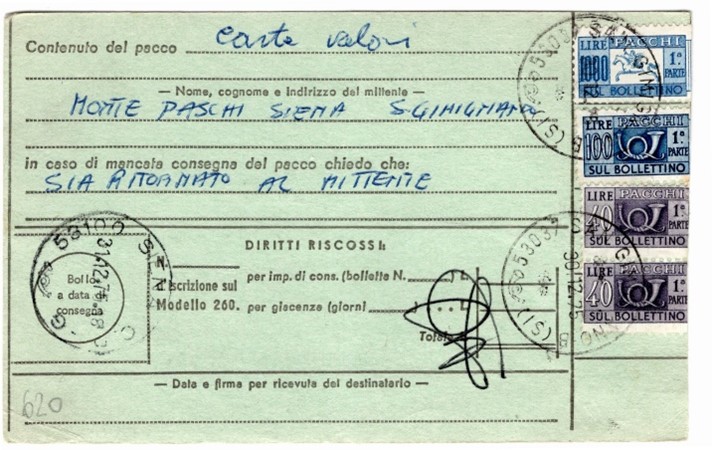 Contenuto del pacco carte valori
— Nome, cognome e indirizzo del mittente —
MONTE PASCHI SIENA S.GIMIGNANO
in caso di mancata consegna del pacco chiedo che:
SIA RITORNATO AL MITTENTE
DIRITTI RISCOSSI:
per imp. di cons. (bollette N. ) L.
Iscrizione sul
Modello 260. per giacenze (giorni ) L.
Totale L.
Bollo
a data di
consegna
53100 SIENA
31.12.75
— Data e firma per ricevuta del destinatario —
620
LIRE PACCHI
1000 1ª PARTE
SUL BOLLETTINO
LIRE PACCHI
100 1ª PARTE
SUL BOLLETTINO
LIRE PACCHI
40 1ª PARTE
SUL BOLLETTINO
LIRE PACCHI
40 1ª PARTE
SUL BOLLETTINO
53037 SAN GIMIGNANO (SI)
30.12.75
53037 SAN GIMIGNANO (SI)